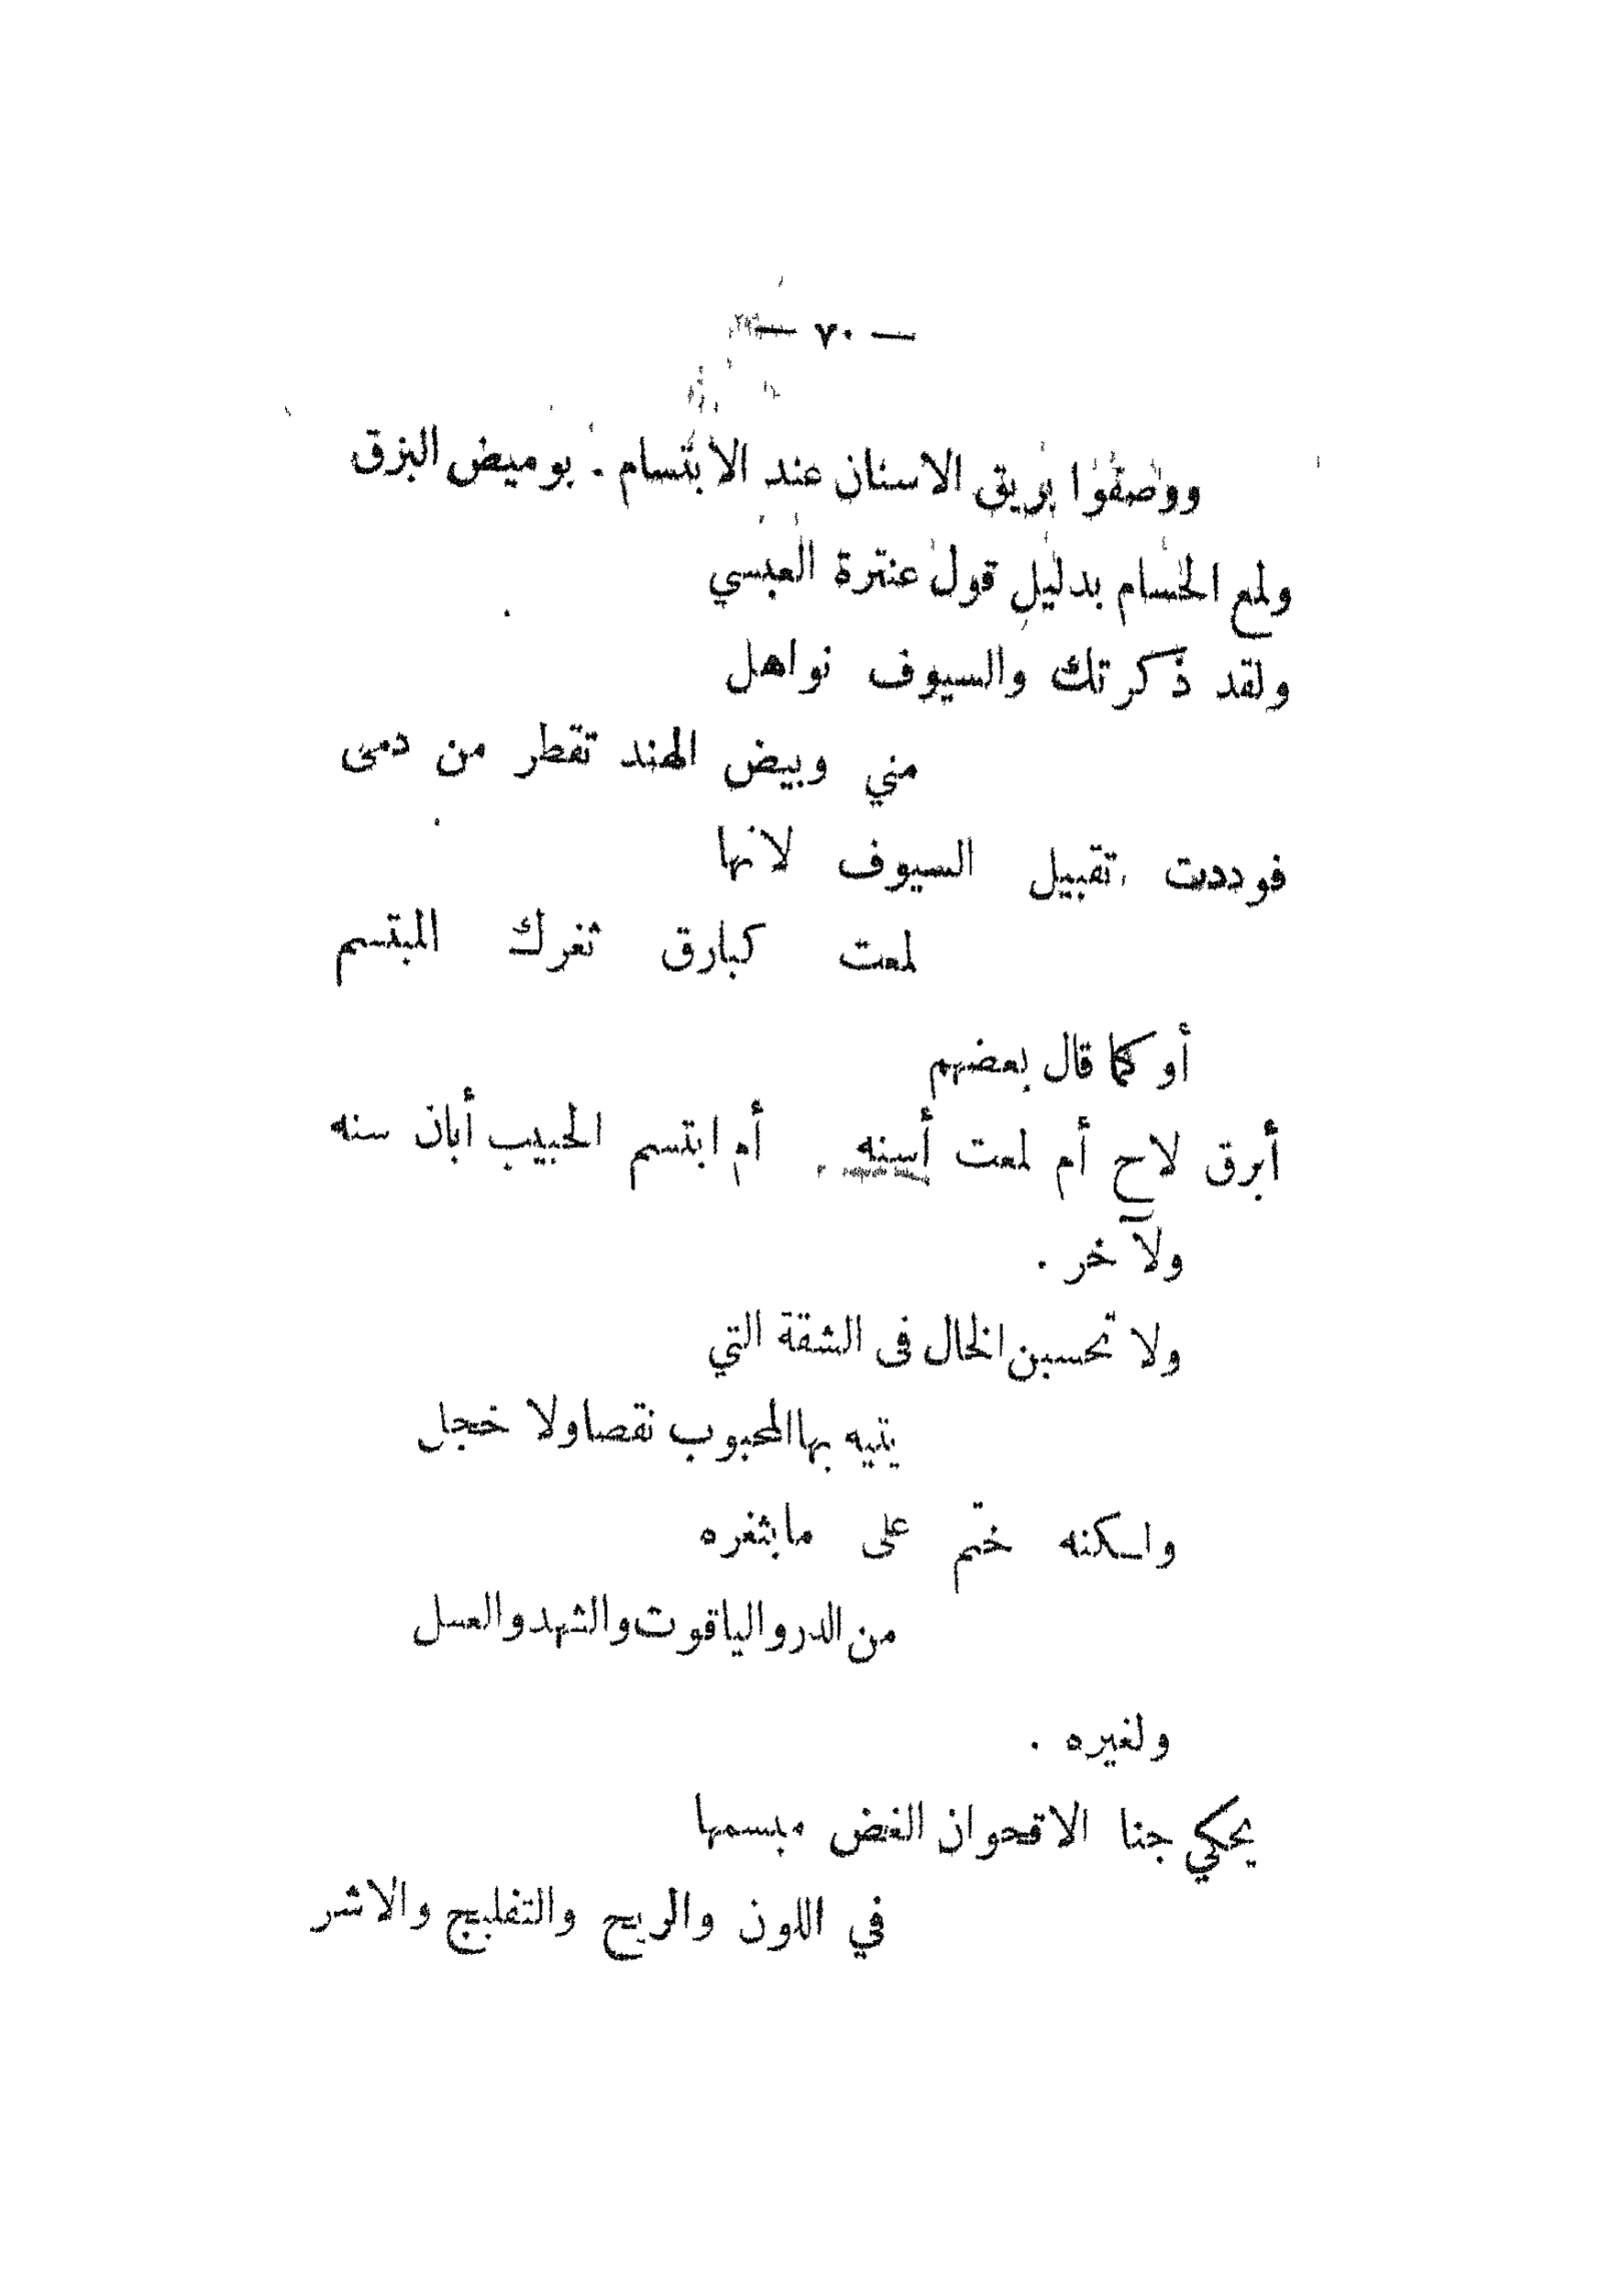 — ٧٠ —
ووصفوا بريق الاسنان عند الابتسام . بوميض البرق
ولمع الحسام بدليل قول عنترة العبسي
ولقد ذكرتك والسيوف نواهل
مني وبيض الهند تقطر من دمى
فوددت تقبيل السيوف لانها
لمعت كبارق ثغرك المبتسم
أو كما قال بعضهم
أبرق لاح أم لمعت أسنه . أم ابتسم الحبيب أبان سنه
ولآخر .
ولا تحسبن الخال فى الشقة التي
يتيه بها المحبوب نقصا ولا خجل
ولكنه ختم على ما بثغره
من الدر والياقوت والشهد والعسل
ولغيره .
يحكي جنا الاقحوان الغض مبسمها
في اللون والريح والتفليج والاشر